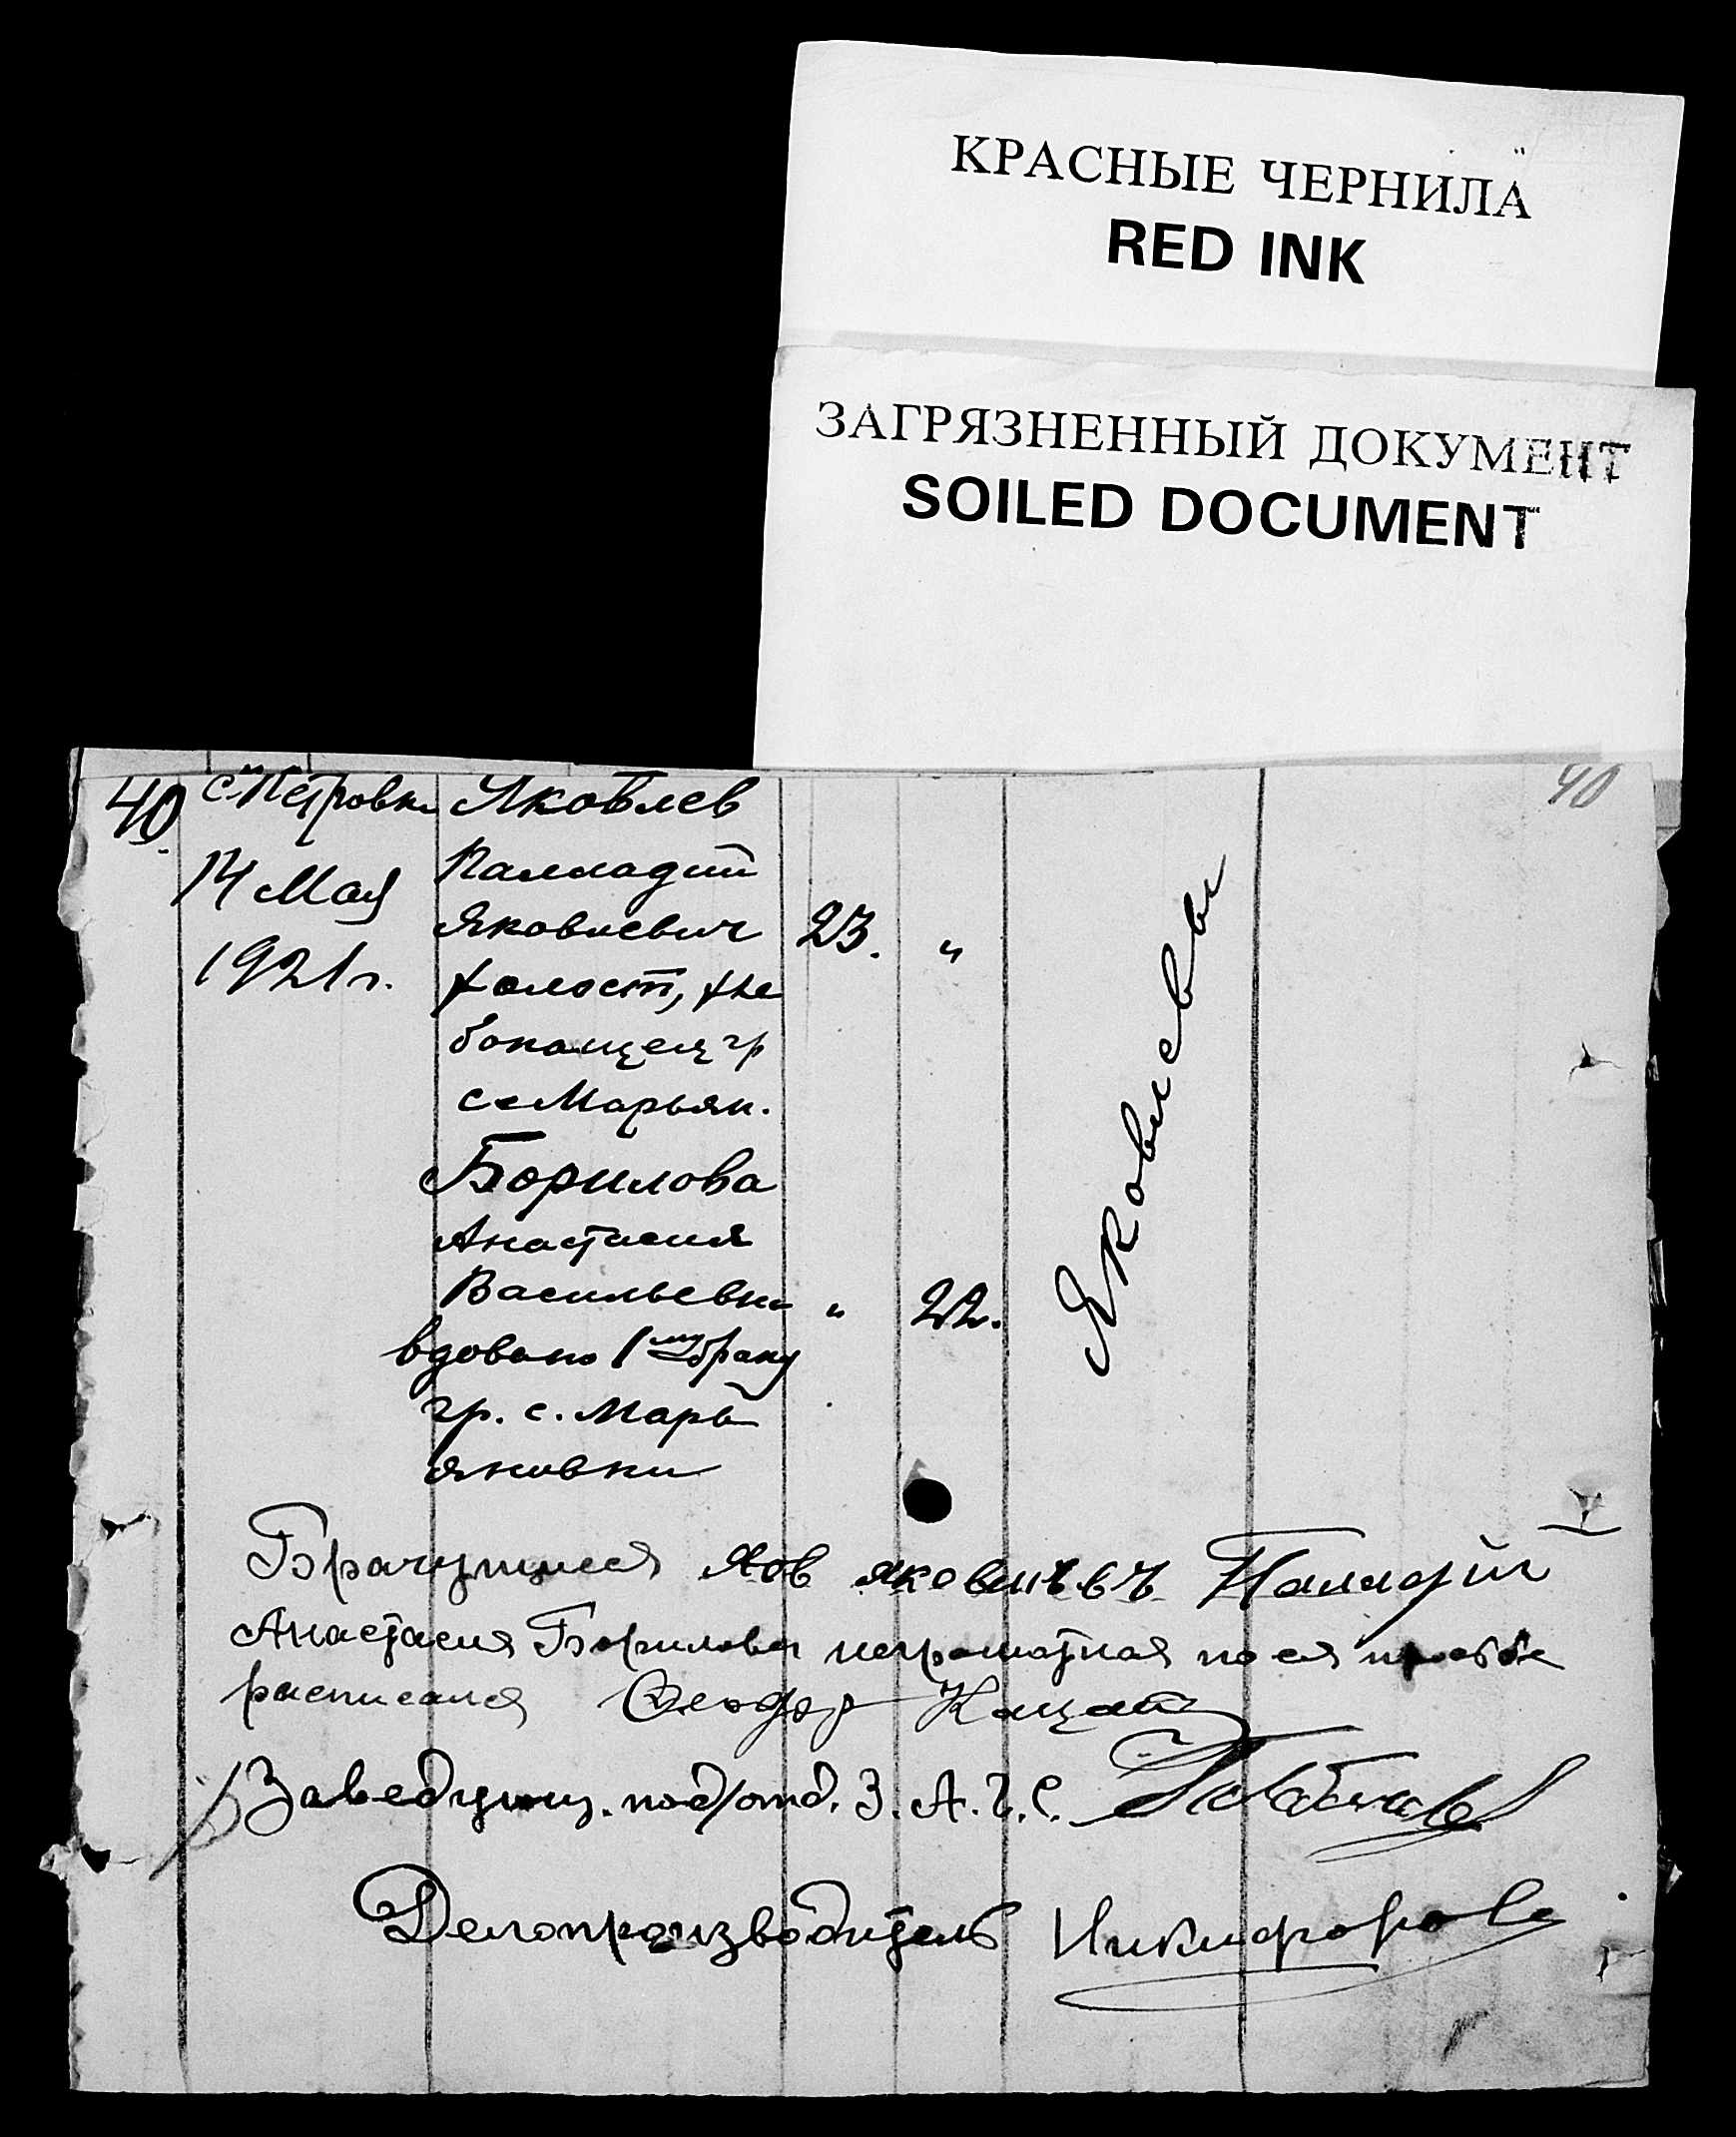 КРАСНЫЕ ЧЕРНИЛА
RED INK
ЗАГРЯЗНЕННЫЙ ДОКУМЕНТ
SOILED DOCUMENT
40
40.
с. Петровка
14 Мая
1921 г.
Яковлев
Палладий
Яковлевич
холост, хле
бопашец гр
с. Марьян.
23. "
Борилова
Анастасия
Васильевна
вдова по 1му браку
гр. с. Марь
яновки
" 22.
Яковлевы
Брачущиеся Яков Яковлевъ Паладий
Анастасия Борилова неграмотная по ея просьбе
расписался
Заведующ. под/отд. З. А. Г. С.
Делопроизводитель Никифорова